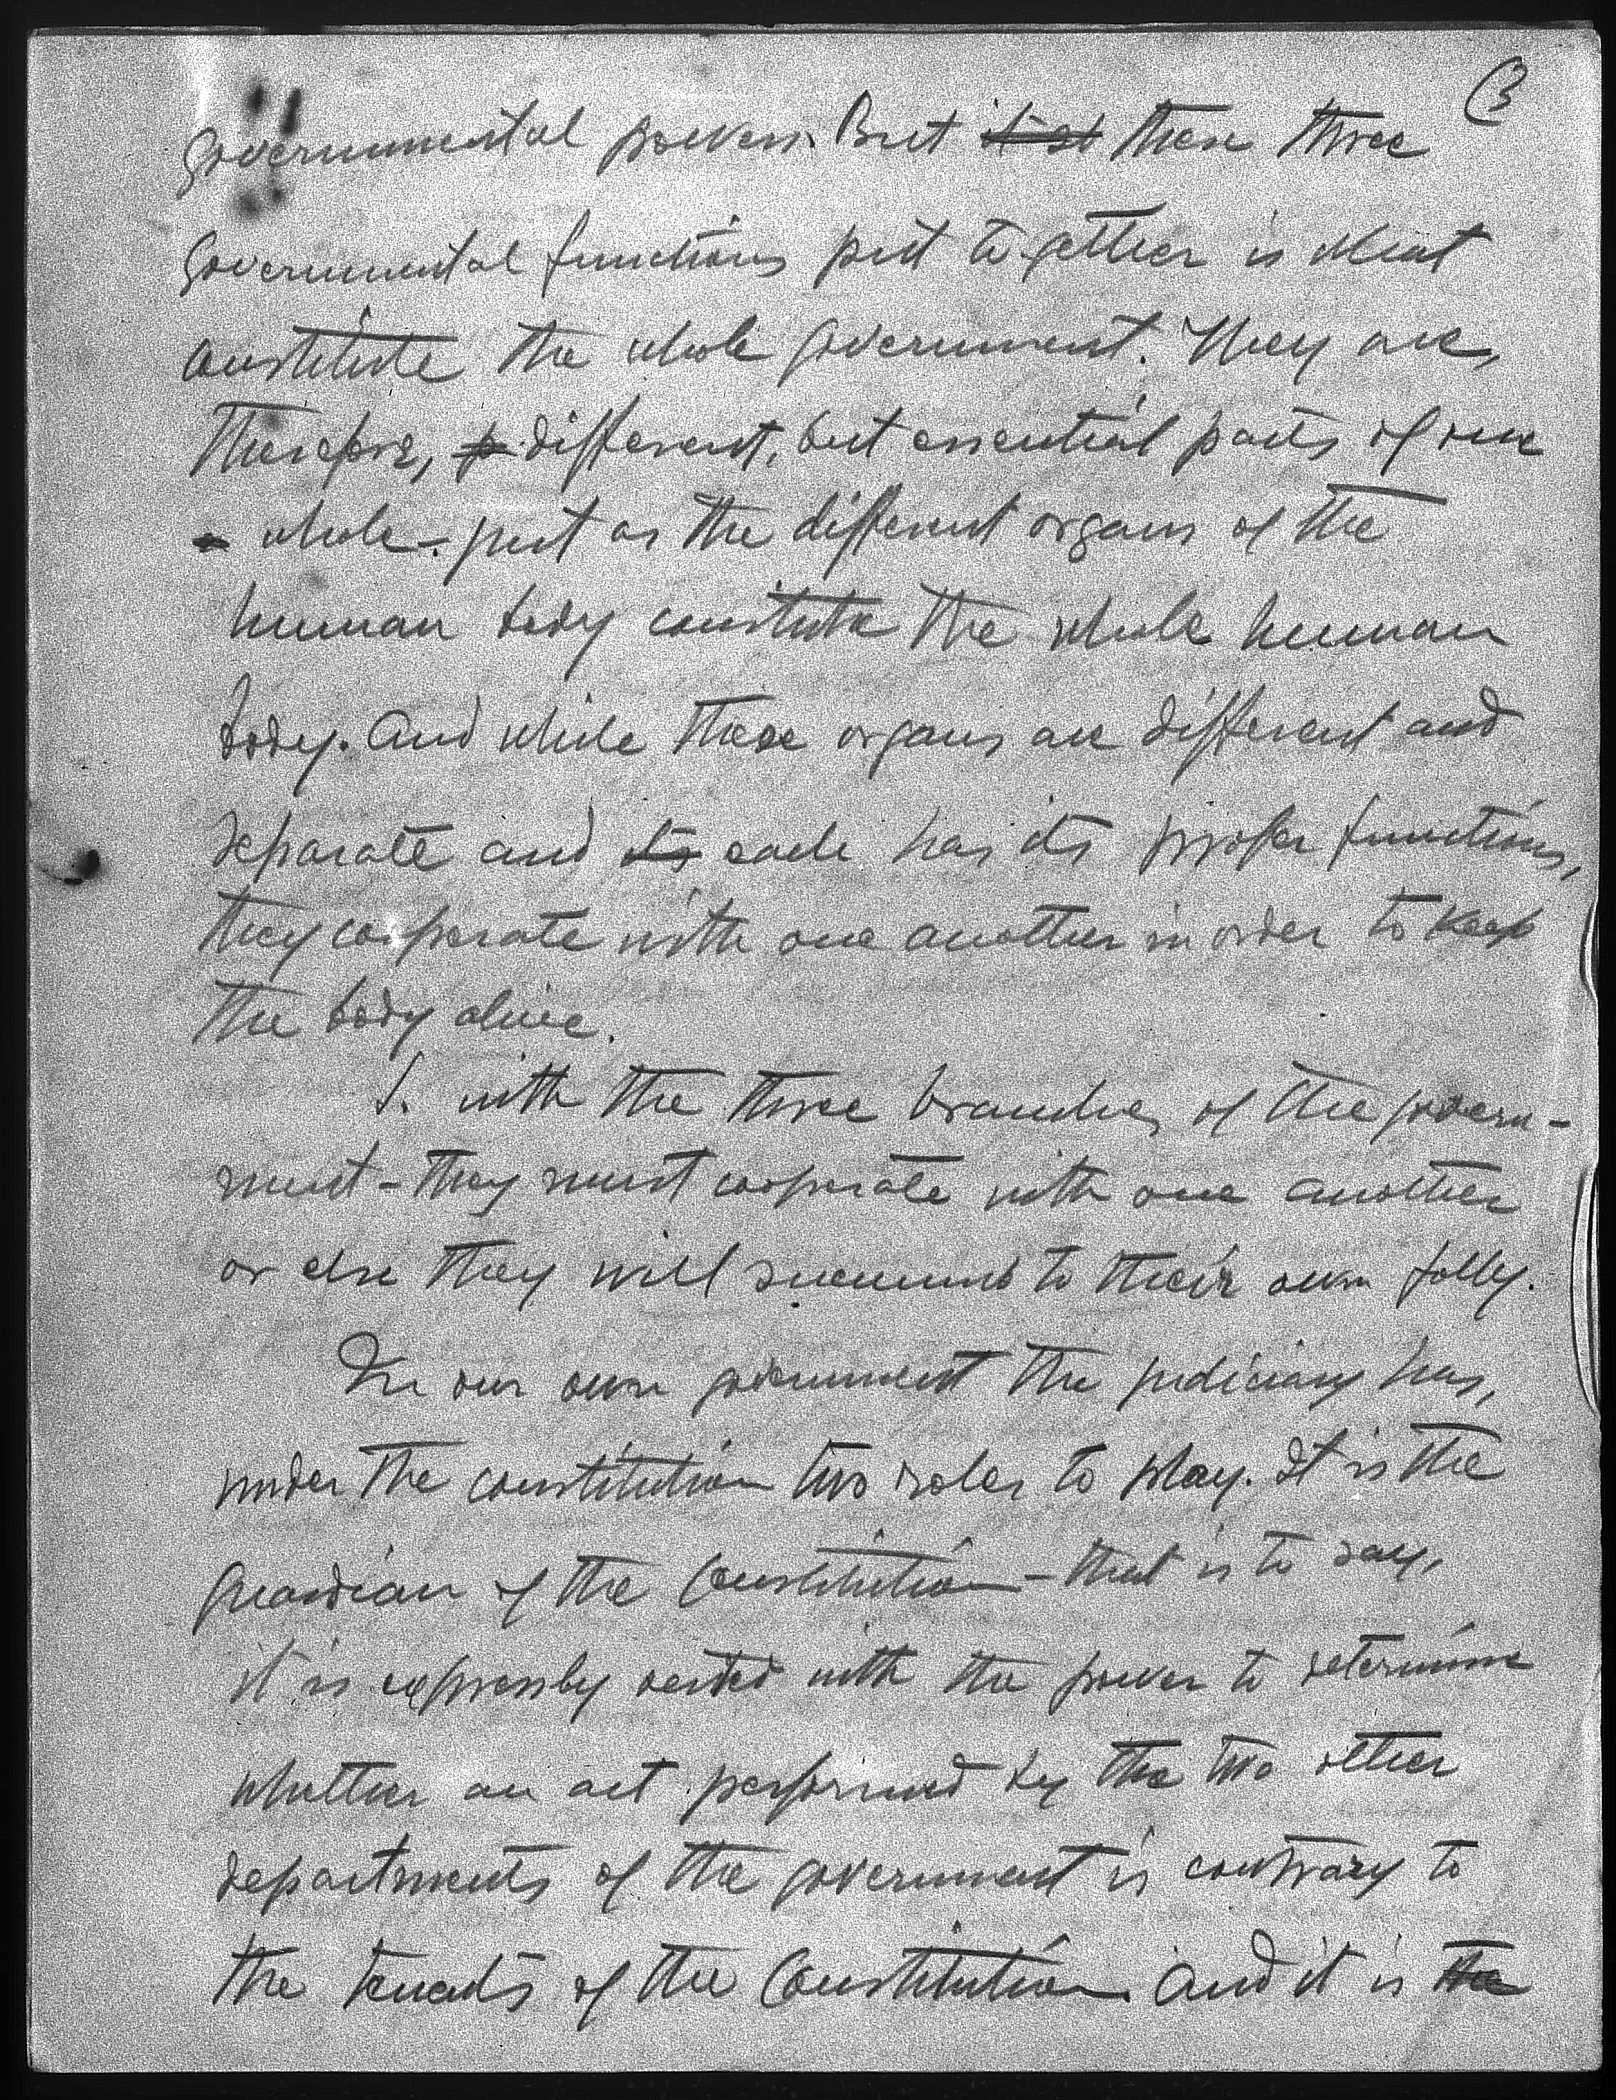 3
Governmental powers. But these three
Governmental functions put together is what
constitute the whole government. They are,
therefore, different, but essential parts of one
whole - just as the different organs of the
human body constitute the whole human
body. And while these organs are different and
separate and each has its proper functions,
they cooperate with one another in order to keep
the body alive.
So with the three branches of the govern-
ment - they must cooperate with one another
or else they will succumb to their own folly.
In our own government the judiciary has,
under the constitution two roles to play. It is the
guardian of the Constitution - that is to say,
it is expressly vested with the power to determine
whether an act performed by the two other
departments of the government is contrary to
the tenets of the Constitution. And it is the